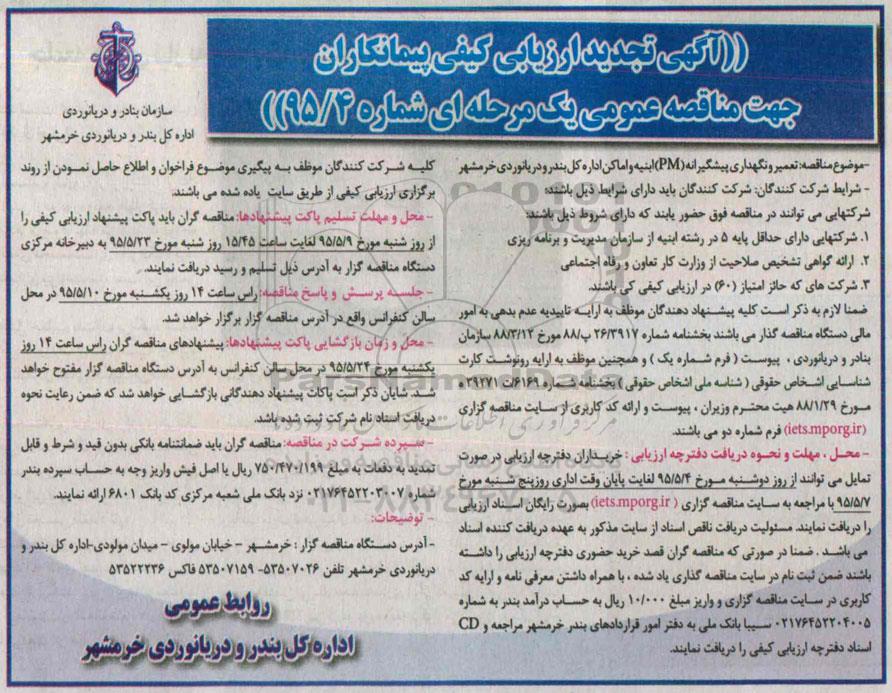 ((آگهی تجدید ارزیابی کیفی پیمانکاران
جهت مناقصه عمومی یک مرحله ای شماره ۹۵/۴))
سازمان بنادر و دریانوردی
اداره کل بندر و دریانوردی خرمشهر
-موضوع مناقصه: تعمیر و نگهداری پیشگیرانه (PM) ابنیه و اماکن اداره کل بندر و دریانوردی خرمشهر
- شرایط شرکت کنندگان: شرکت کنندگان باید دارای شرایط ذیل باشند:
شرکتهایی می توانند در مناقصه فوق حضور یابند که دارای شروط ذیل باشند:
۱. شرکتهایی دارای حداقل پایه ۵ در رشته ابنیه از سازمان مدیریت و برنامه ریزی
۲. ارائه گواهی تشخیص صلاحیت از وزارت کار تعاون و رفاه اجتماعی
۳. شرکت های که حائز امتیاز (۶۰) در ارزیابی کیفی کی باشند.
ضمنا لازم به ذکر است کلیه پیشنهاد دهندگان موظف به ارایه تاییدیه عدم بدهی به امور
مالی دستگاه مناقصه گذار می باشند بخشنامه شماره ۲۶/۳۹۱۷ پ/۸۸ مورخ ۸۸/۳/۱۲ سازمان
بنادر و دریانوردی ، پیوست ( فرم شماره یک ) و همچنین موظف به ارایه رونوشت کارت
شناسایی اشخاص حقوقی ( شناسه ملی اشخاص حقوقی ) بخشنامه شماره ۶۱۶۹/ت ۳۹۲۷۱ ه
مورخ ۸۸/۱/۲۹ هیت محترم وزیران ، پیوست و ارائه کد کاربری از سایت مناقصه گزاری
(iets.mporg.ir) فرم شماره دو می باشند.
- محل ، مهلت و نحوه دریافت دفترچه ارزیابی : خریداران دفترچه ارزیابی در صورت
تمایل می توانند از روز دوشنبه مورخ ۹۵/۵/۴ لغایت پایان وقت اداری روزپنج شنبه مورخ
۹۵/۵/۷ با مراجعه به سایت مناقصه گزاری (iets.mporg.ir) بصورت رایگان اسناد ارزیابی
را دریافت نمایند. مسئولیت دریافت ناقص اسناد از سایت مذکور به عهده دریافت کننده اسناد
می باشد . ضمنا در صورتی که مناقصه گران قصد خرید حضوری دفترچه ارزیابی را داشته
باشند ضمن ثبت نام در سایت مناقصه گذاری یاد شده ، با همراه داشتن معرفی نامه و ارایه کد
کاربری در سایت مناقصه گزاری و واریز مبلغ ۱۰/۰۰۰ ریال به حساب درآمد بندر به شماره
۰۲۱۷۶۴۵۲۲۰۴۰۰۵ سیبا بانک ملی به دفتر امور قراردادهای بندر خرمشهر مراجعه و CD
اسناد دفترچه ارزیابی کیفی را دریافت نمایند.
کلیه شرکت کنندگان موظف به پیگیری موضوع فراخوان و اطلاع حاصل نمودن از روند
برگزاری ارزیابی کیفی از طریق سایت یاده شده می باشند.
- محل و مهلت تسلیم پاکت پیشنهادها: مناقصه گران باید پاکت پیشنهاد ارزیابی کیفی را
از روز شنبه مورخ ۹۵/۵/۹ لغایت ساعت ۱۵/۴۵ روز شنبه مورخ ۹۵/۵/۲۳ به دبیرخانه مرکزی
دستگاه مناقصه گزار به آدرس ذیل تسلیم و رسید دریافت نمایند.
- جلسه پرسش و پاسخ مناقصه: راس ساعت ۱۴ روز یکشنبه مورخ ۹۵/۵/۱۰ در محل
سالن کنفرانس واقع در آدرس مناقصه گزار برگزار خواهد شد.
- محل و زمان بازگشایی پاکت پیشنهادها: پیشنهادهای مناقصه گران راس ساعت ۱۴ روز
یکشنبه مورخ ۹۵/۵/۲۴ در محل سالن کنفرانس به آدرس دستگاه مناقصه گزار مفتوح خواهد
شد. شایان ذکر است پاکات پیشنهاد دهندگانی بازگشایی خواهد شد که ضمن رعایت نحوه
دریافت اسناد نام شرکت ثبت شده باشد.
- سپرده شرکت در مناقصه: مناقصه گران باید ضمانتنامه بانکی بدون قید و شرط و قابل
تمدید به دفعات به مبلغ ۷۵۰/۴۷۰/۱۹۹ ریال یا اصل فیش واریز وجه به حساب سپرده بندر
شماره ۰۲۱۷۶۴۵۲۲۰۴۰۰۷ نزد بانک ملی شعبه مرکزی کد بانک ۶۸۰۱ ارائه نمایند.
- توضیحات:
- آدرس دستگاه مناقصه گزار : خرمشهر - خیابان مولوی - میدان مولودی-اداره کل بندر و
دریانوردی خرمشهر تلفن ۵۳۵۰۷۰۲۶- ۵۳۵۰۷۱۵۹ فاکس ۵۳۵۲۲۲۳۶
روابط عمومی
اداره کل بندر و دریانوردی خرمشهر
ParsNamadData
۰۲۱-۸۸۳۴۹۶۷۰-۵